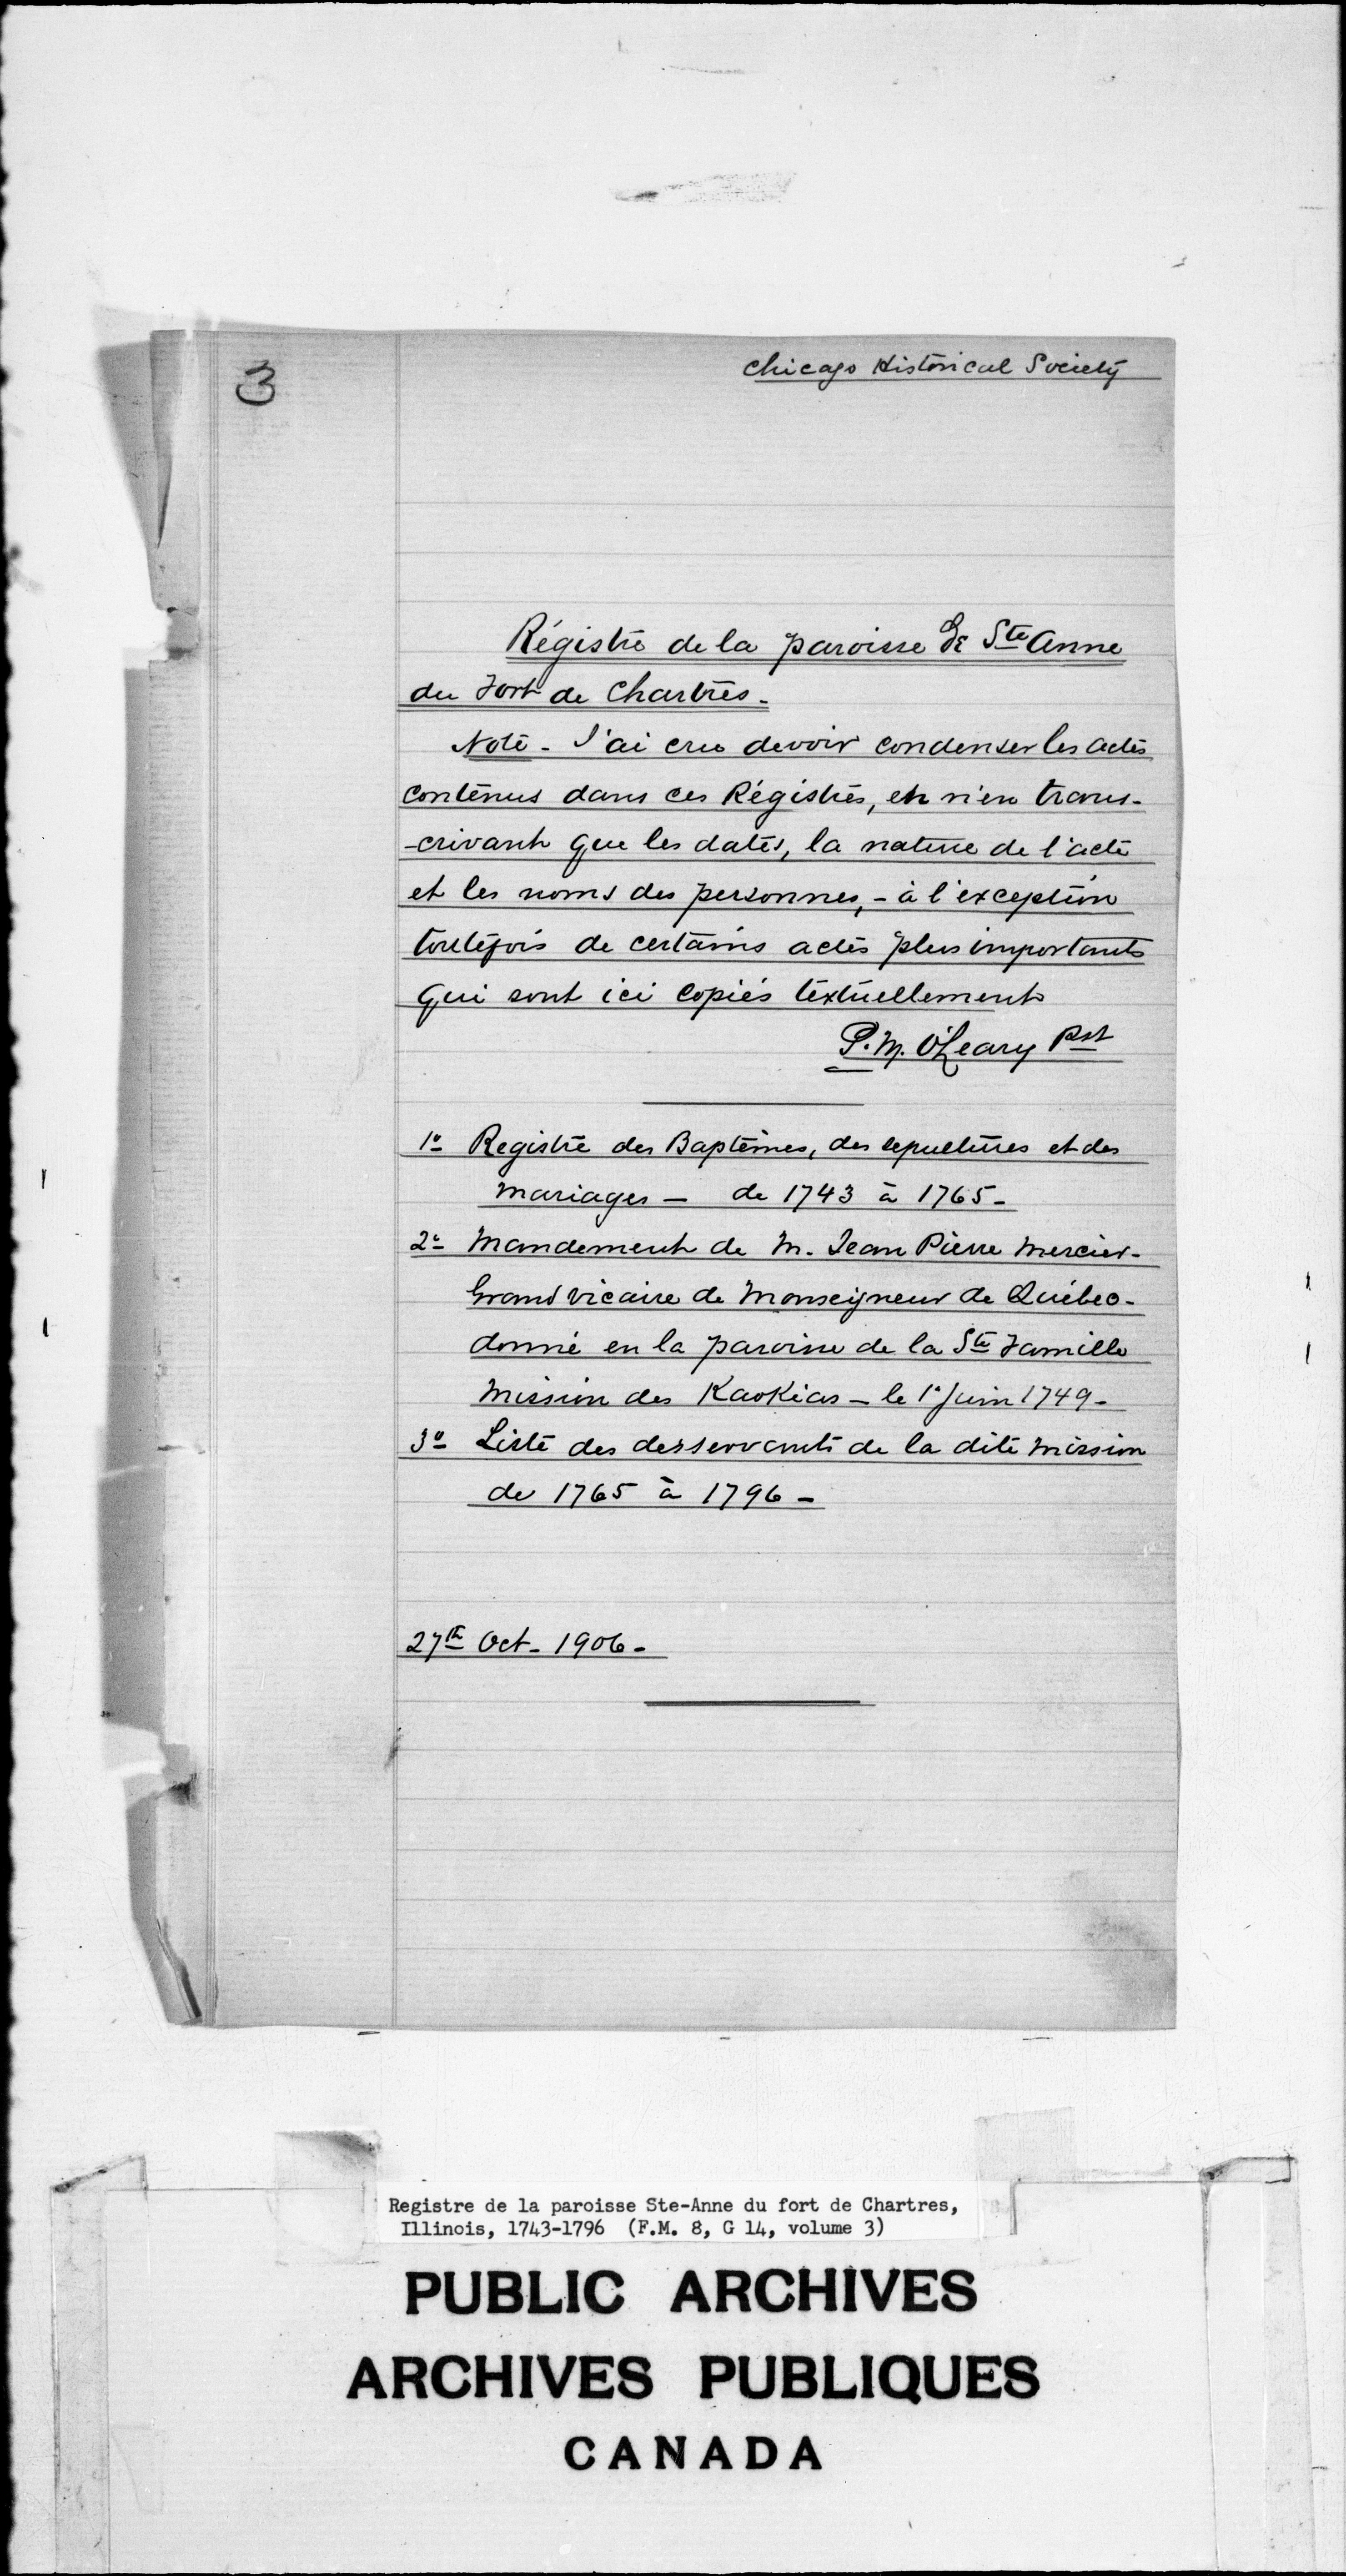 3
Chicago Historical Society
Régistre de la paroisse de Ste Anne
du Fort de Chartres.
Note - J'ai cru devoir condenser les actes
contenus dans ces Régistres, en n'en trans-
-crivant que les dates, la nature de l'acte
et les noms des personnes, - à l'exception
toutefois de certains actes plus importants
qui sont ici copiés textuellement
P. M. O'Leary Pst
1º Registre des Baptêmes, des sepultures et des
mariages - de 1743 à 1765 -
2º Mandement de M. Jean Pierre Mercier -
Grand vicaire de Monseigneur de Québec -
donné en la paroisse de la Ste Famille
Mission des Kaokias - le 1º Juin 1749 -
3º Liste des desservants de la dite Mission
de 1765 à 1796 -
27th Oct - 1906 -
Registre de la paroisse Ste-Anne du fort de Chartres,
Illinois, 1743-1796 (F.M. 8, G 14, volume 3)
PUBLIC ARCHIVES
ARCHIVES PUBLIQUES
CANADA